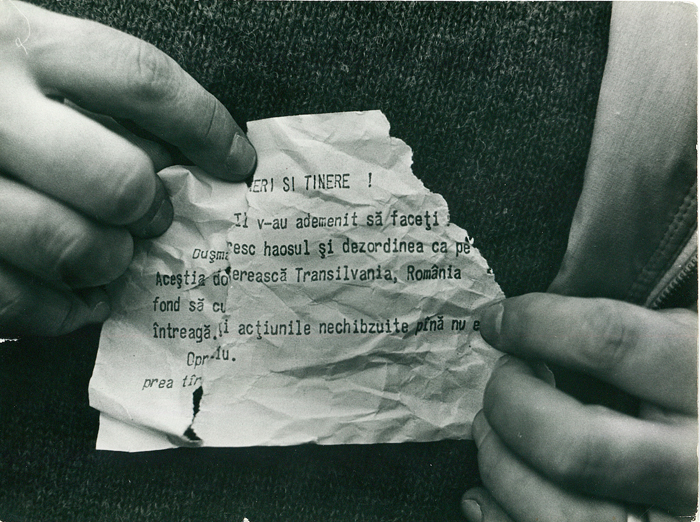 ERI SI TINERE !
Il v-au ademenit să faceţi
Duşma resc haosul şi dezordinea ca pe
Aceştia do erească Transilvania, România
fond să cu
întreagă. i acţiunile nechibzuite pînă nu e
Opr iu.
prea tîr